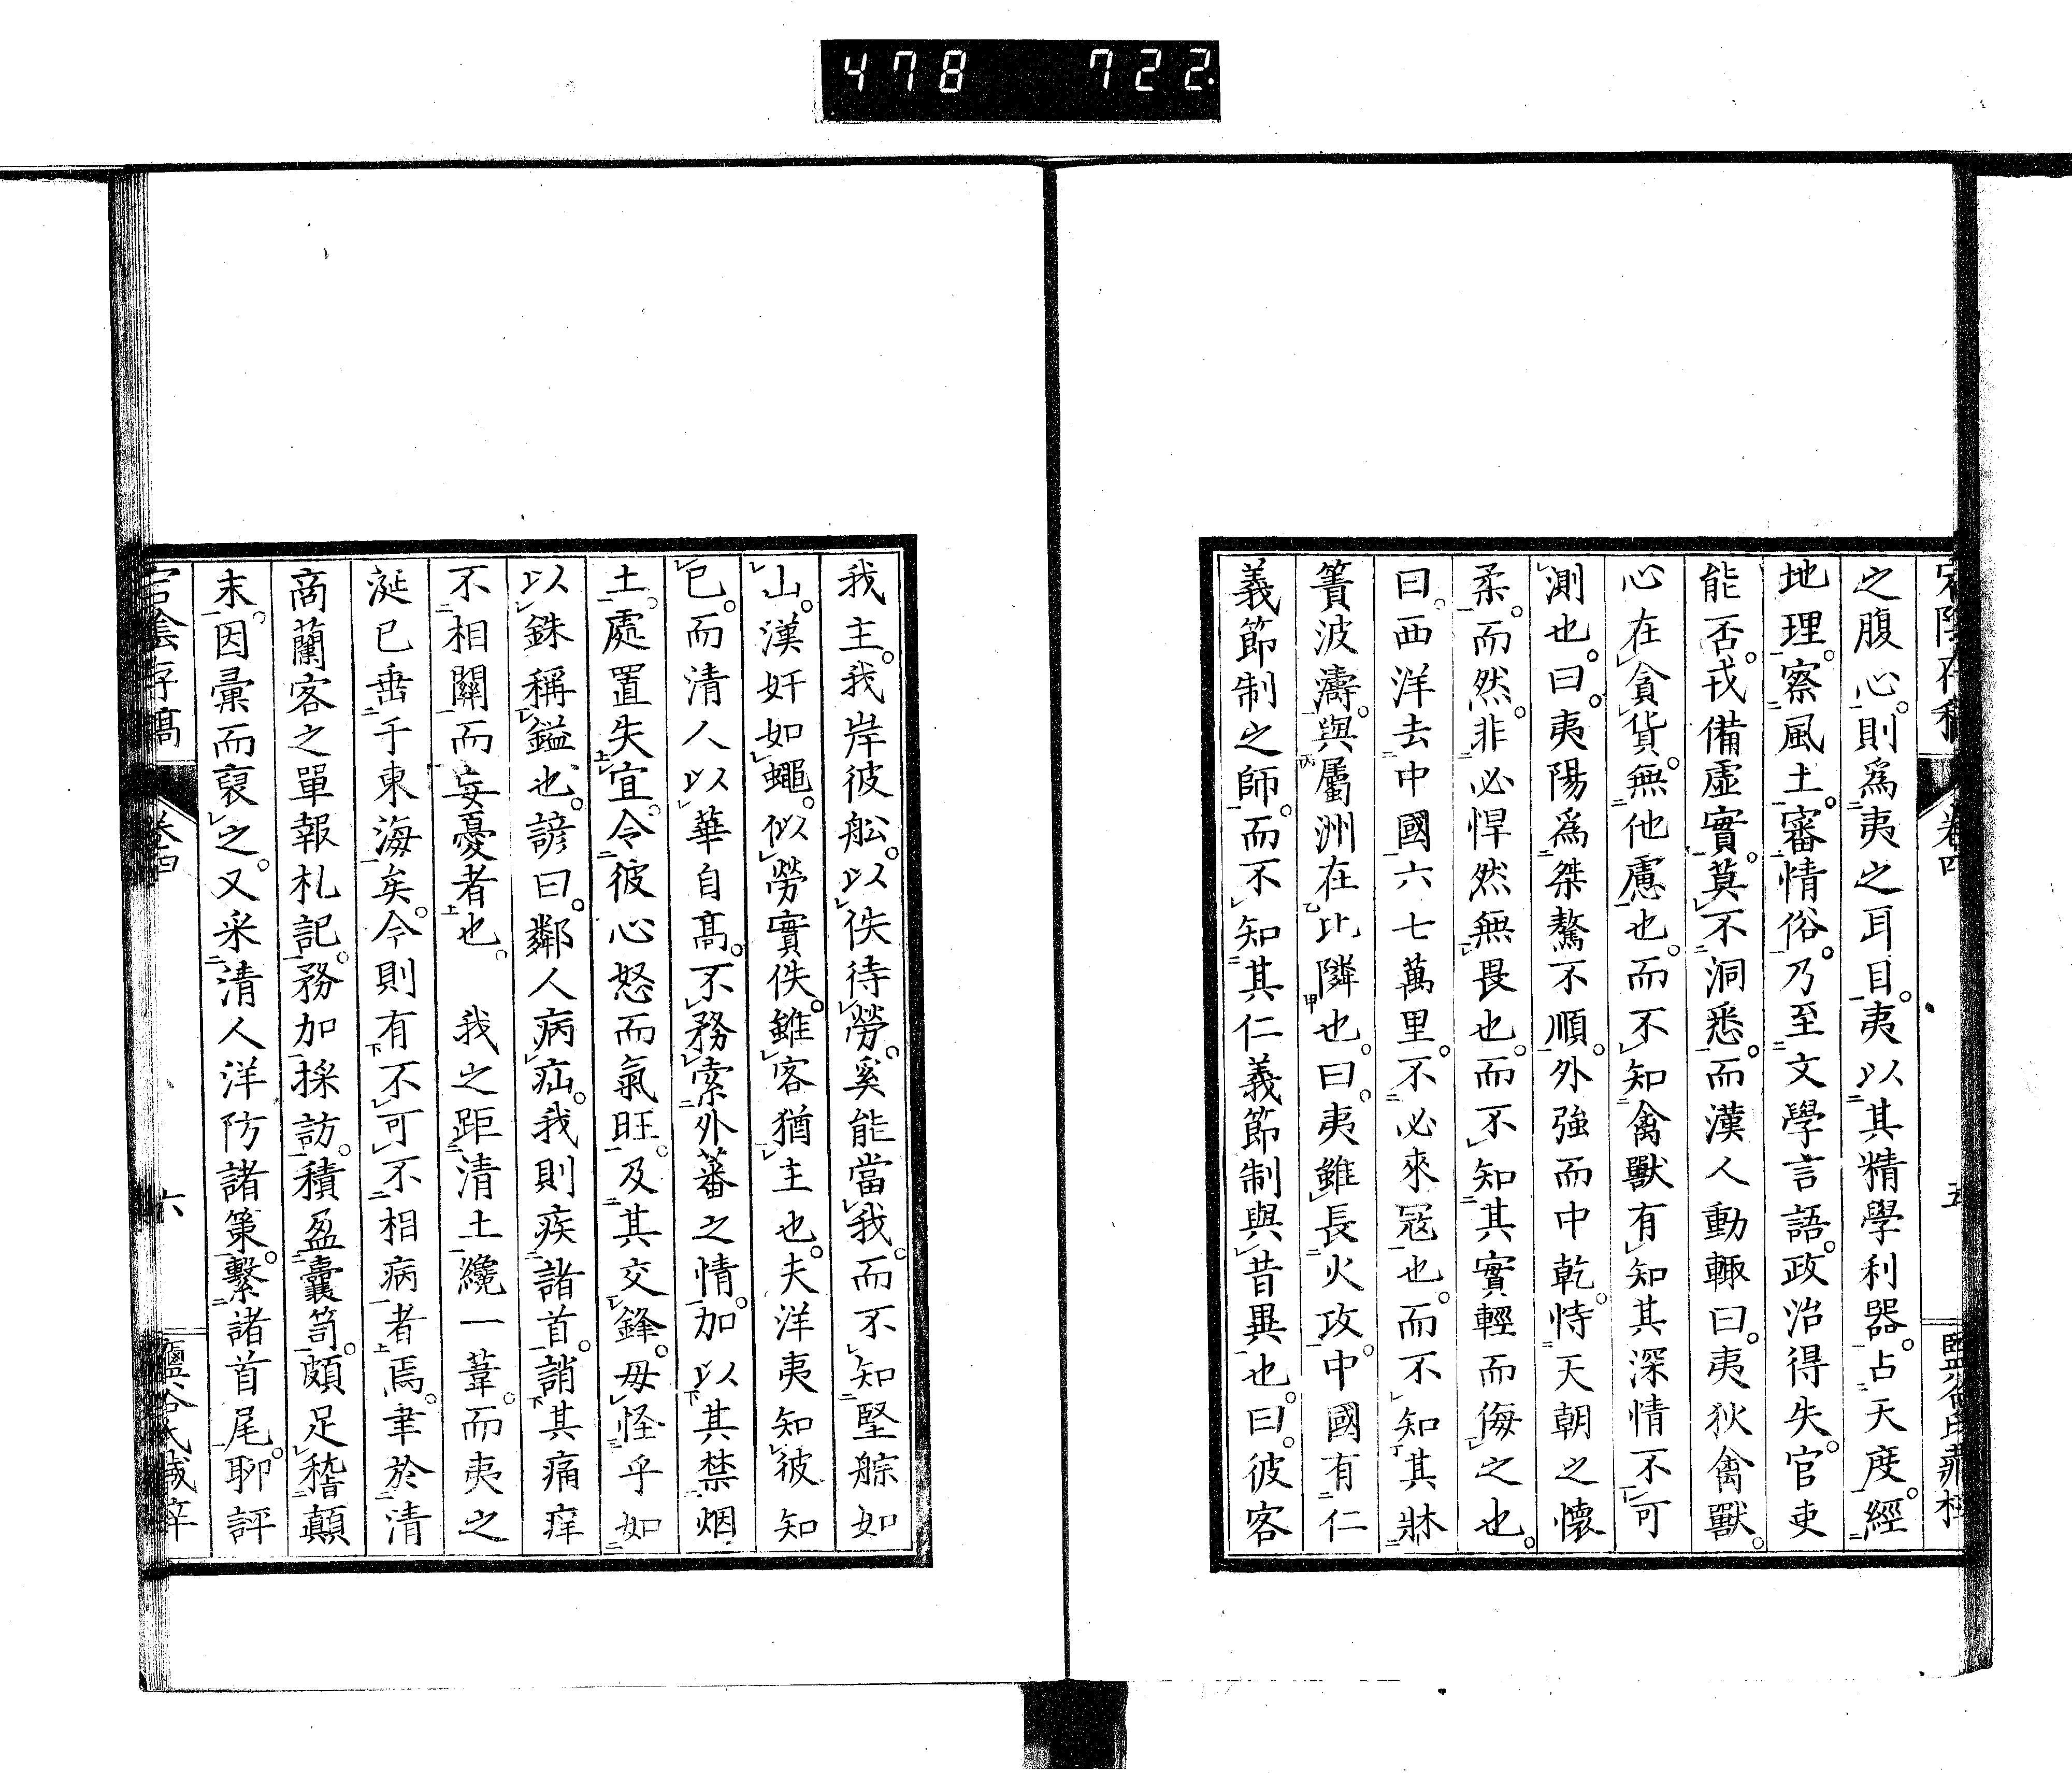 478 722.
之腹心。則爲夷之耳目。夷以其精學利器。占天度。經
地理。察風土。審情俗。乃至文學言語。政治得失。官吏
能否。戎備虛實。莫不洞悉。而漢人動輙曰。夷狄禽獸。
心在貪貨。無他慮也。而不知禽獸有知其深情不可
測也。曰。夷陽爲桀驁不順。外強而中乾。恃天朝之懷
柔。而然。非必悍然無畏也。而不知其實輕而侮之也。
曰。西洋去中國六七萬里。不必來冦也。而不知其牀
簀波濤。與屬洲在比隣也。曰。夷雖長火攻。中國有仁
義節制之師。而不知其仁義節制與昔異也。曰。彼客
卷四
五
我主。我岸彼舩。以佚待勞。奚能當我。而不知堅䑸如
山。漢奸如蠅。似勞實佚。雖客猶主也。夫洋夷知彼知
已。而清人以華自髙。不務索外蕃之情。加以其禁烟
土。處置失宜。令彼心怒而氣旺。及其交鋒。毋怪乎如
以銖稱鎰也。諺曰。鄰人病疝。我則疾諸首。誚其痛痒
不相關而妄憂者也。 我之距清土纔一葦。而夷之
涎已垂于東海矣。今則有不可不相病者焉。聿於清
商蘭客之單報札記。務加採訪。積盈囊笥。頗足稽顛
末。因彙而裒之。又采清人洋防諸策。繫諸首尾。聊評
宕陰存稿
卷四
六